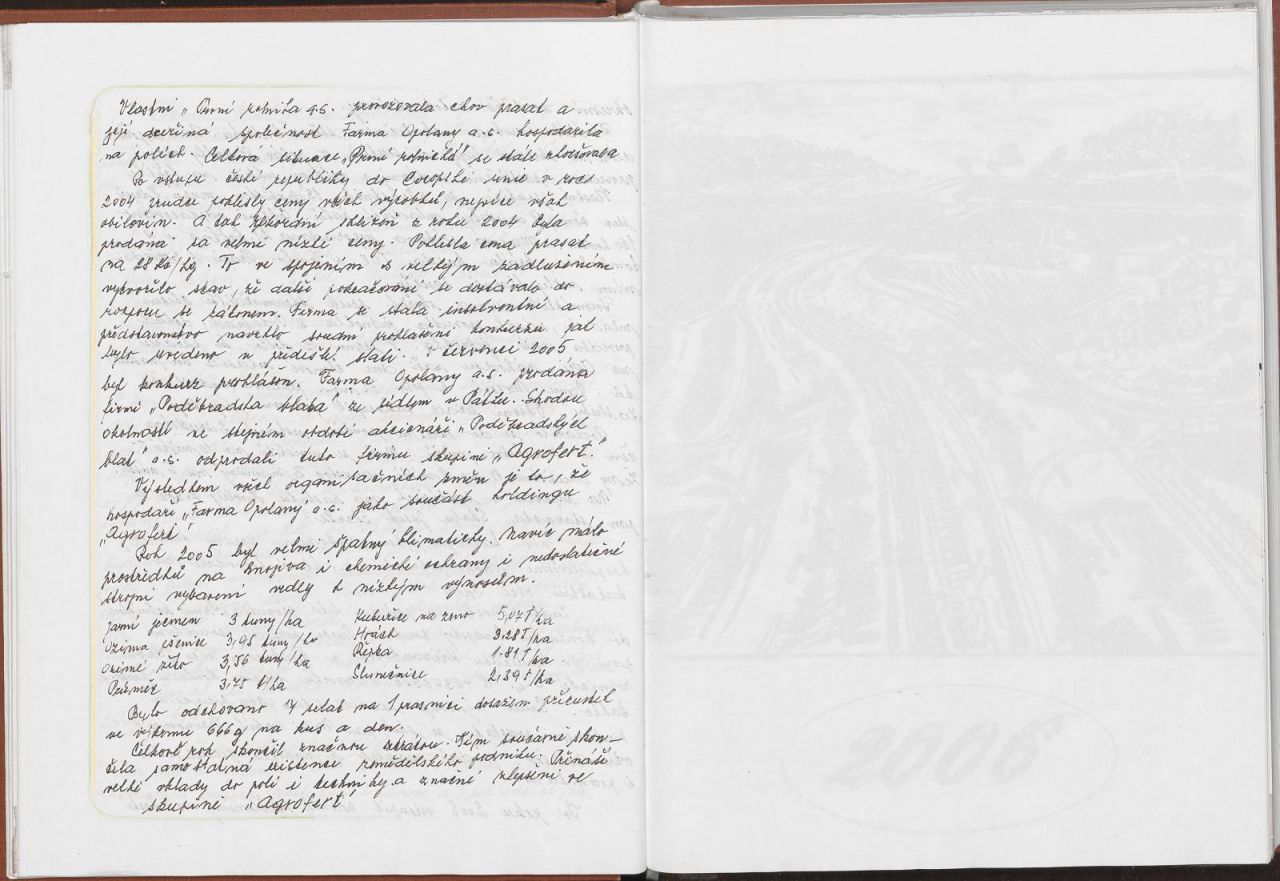 Vlastní „První rolnická a.s. provozovala chov prasat a
její dceřiná společnost Farma Opolany a.s. hospodařila
na polích. Celková situace „První rolnické" se stále zhoršovala
Po vstupu české republiky do Evropské unie v roce
2004 prudce poklesly ceny všech výrobků, nejvíce však
obilovin. A tak rekordní sklizeň z roku 2004 byla
prodána za velmi nízké ceny. Poklesla cena prasat
na 28 Kč/kg. To ve spojením s velkým zadlužením
vytvořilo stav, že další pokračování se dostávalo do
rozporu se zákonem. Firma se stala insolventní a
představenstvo navrhlo soudní prohlášení konkurzu jak
bylo uvedeno v předešlé stati. V červenci 2005
byl konkurz prohlášen. Farma Opolany a.s. prodána
firmě „Poděbradská blata" se sídlem v Pátku. Shodou
okolností ve stejném období akcionáři „Poděbradských
blat" a.s. odprodali tuto firmu skupině „Agrofert."
Výsledkem všech organizačních změn je to, že
hospodaří „Farma Opolany a.s. jako součást holdingu
„Agrofert"
Rok 2005 byl velmi špatný klimaticky. Navíc málo
prostředků na hnojiva i chemické ochrany i nedostatečné
strojní vybavení vedly k nízkým výnosům.
jarní ječmen 3 tuny/ha Kukuřice na zrno 5,07 T/ha
Ozimá pšenice 3,95 tuny/ha Hrách 3,28 T/ha
Ozimé žito 3,56 tuny/ha Řepka 1.81 T/ha
Průměr 3,75 t/ha Slunečnice 2,39 T/ha
Bylo odchováno 17 selat na 1 prasnici dosažem přírustek
ve výkrmu 666 g na kus a den.
Celkově rok skončil značnou ztrátou. Tím současně skon-
čila samostatná existence zemědělského podniku. Přináší
velké vklady do polí i techniky a značné zlepšení ve
skupině „Agrofert"